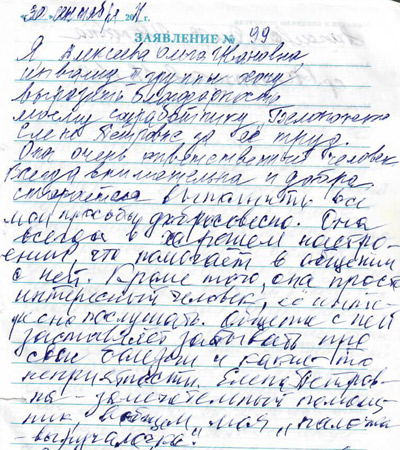 "30" сентября 20 г.
ЗАЯВЛЕНИЕ № 99
Я Алексеева Ольга Ивановна
инвалид I группы хочу
выразить благодарность
моему соработнику
Елене Петровне за её труд.
Она очень ответственный человек
всегда внимательна и добра
старается выполнить все
мои просьбы добросовестно. Она
всегда в хорошем настро-
ении, что помогает в общении
с ней. Кроме того, она просто
интересный человек, её инте-
ресно послушать. Общение с ней
заставляет забывать про
свои болезни и какие-то
неприятности. Елена Петров-
на - замечательный помощ-
ник, вобщем, моя "палочка
- выручалочка."